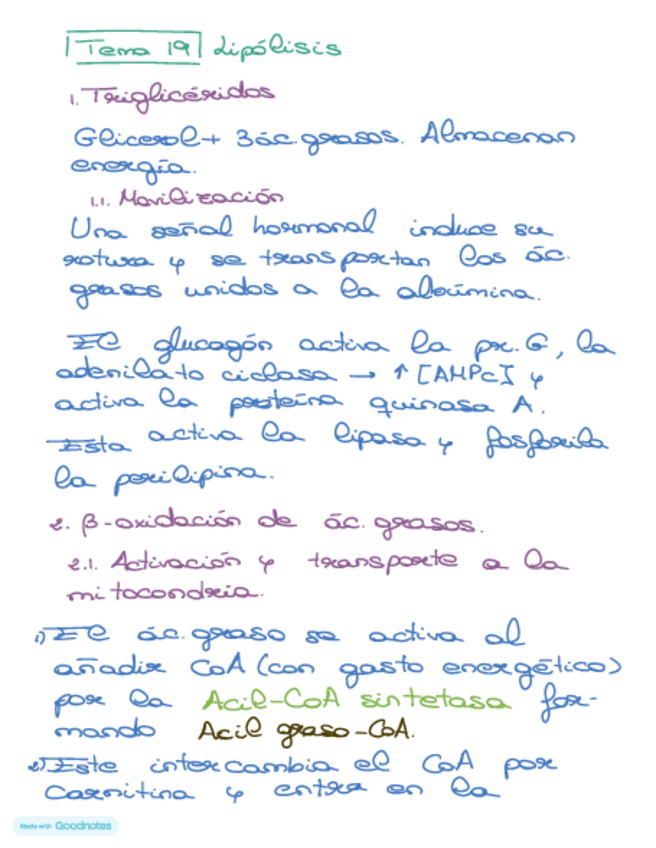 Tema 19 Lipólisis
1. Triglicéridos
Glicerol + 3 ác. grasos. Almacenan
energía.
1.1. Movilización
Una señal hormonal induce su
rotura y se transportan los ác.
grasos unidos a la albúmina.
El glucagón activa la pr. G, la
adenilato ciclasa → ↑ [AMPc] y
activa la proteína quinasa A.
Esta activa la lipasa y fosforila
la perilipina.
2. β-oxidación de ác. grasos.
2.1. Activación y transporte a la
mitocondria.
1) El ác. graso se activa al
añadir CoA (con gasto energético)
por la Acil-CoA sintetasa for-
mando Acil graso-CoA.
2) Este intercambia el CoA por
Carnitina y entra en la
Made with Goodnotes